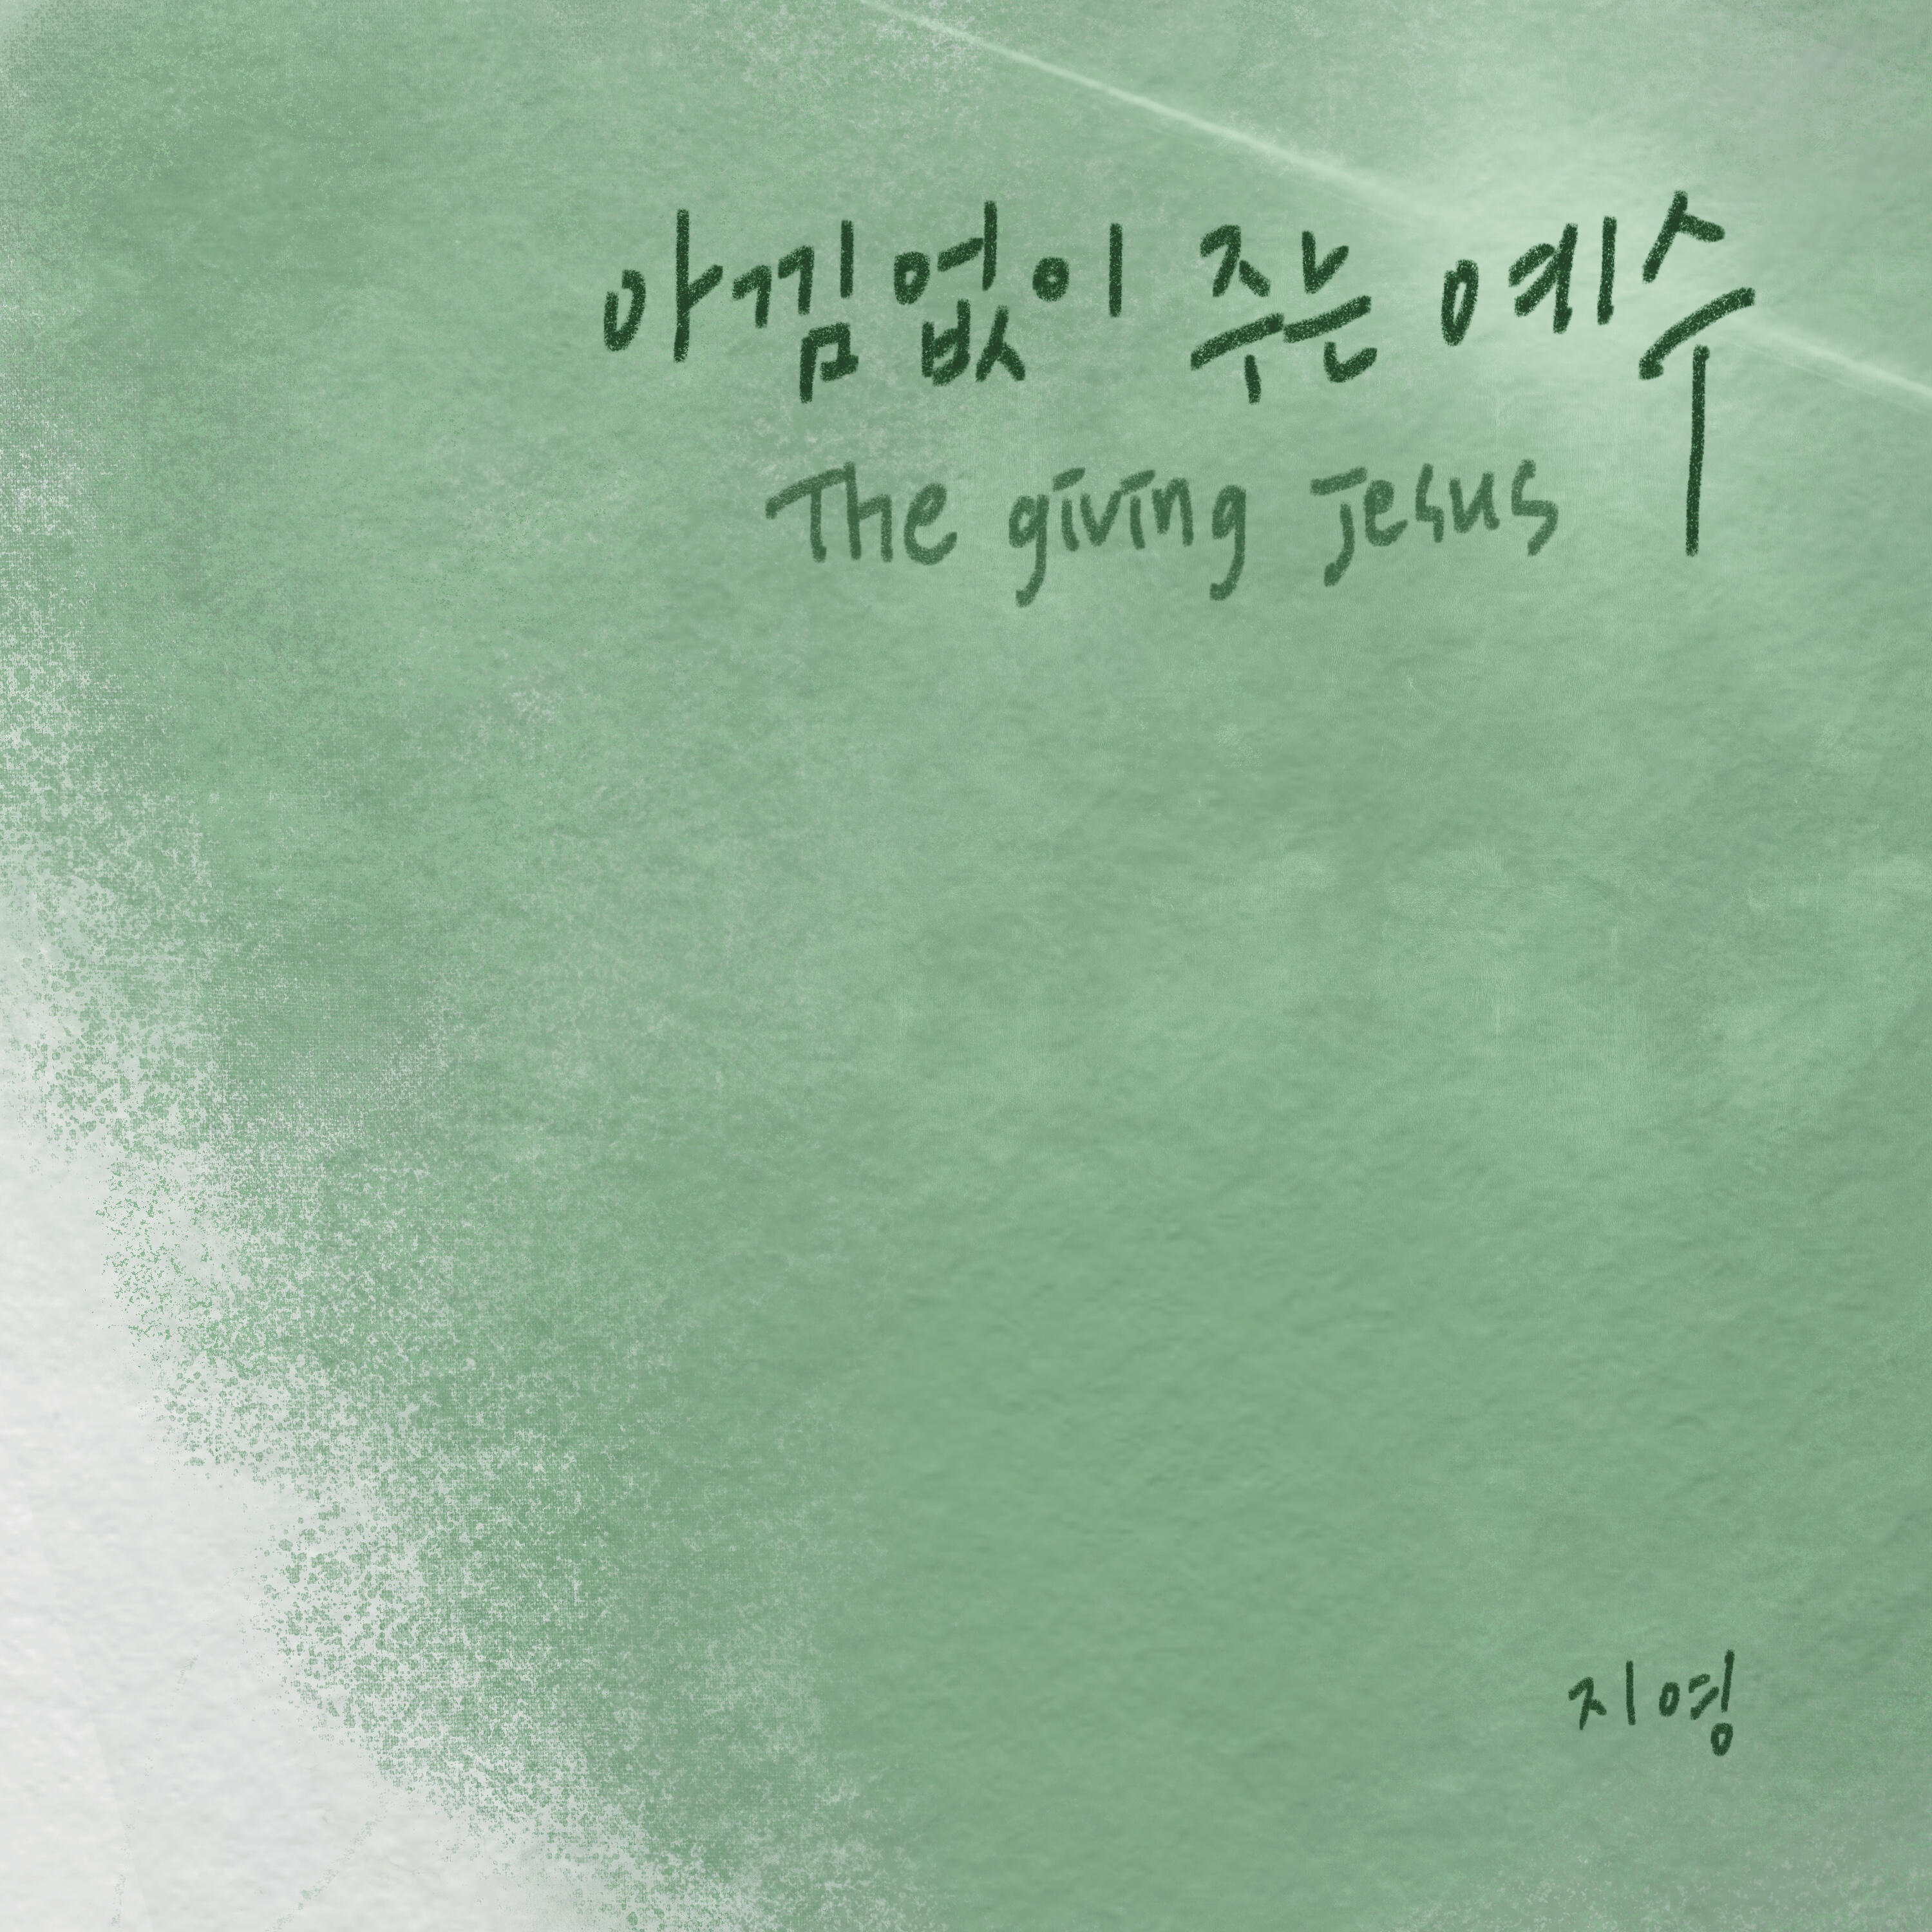 아낌없이 주는 예수
The giving jesus
지영